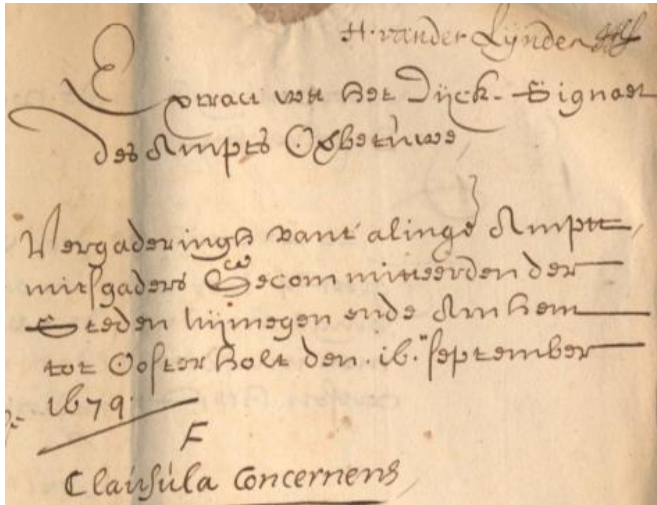 H. vander Lijnden
Extract wtt het Dijck-Signaet
des Ampts Overbetuwe
Vergaderingh vant alinge Ampt
mitsgaders Gecommitteerden der
Steden Nijmegen ende Arnhem
tot Oosterholt den 16. september
1679.
F
Clausula Concernens